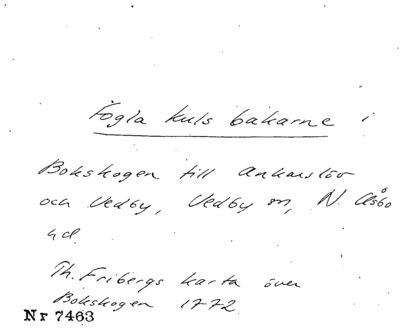 Fogla kuls bakarne i
Bokskogen till Ankarslöv
och Vedby, Vedby sn, N. Åsbo
hd.
Th. Fribergs karta över
Bokskogen 1772
Nr 7463